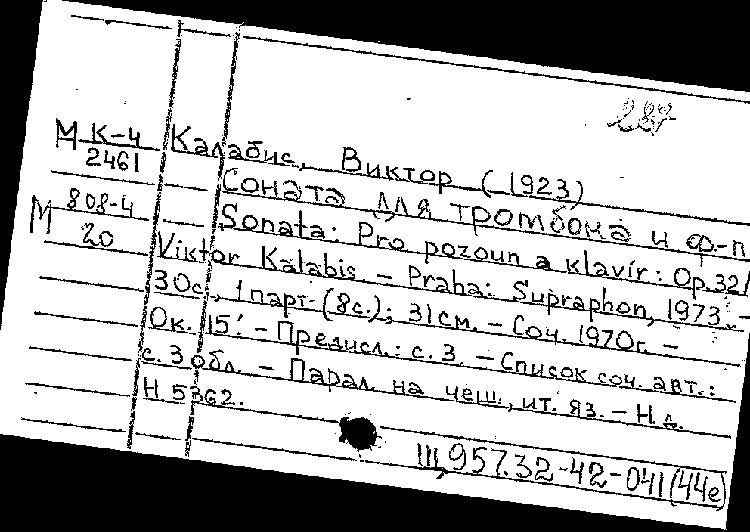 287
М К-4 Калабис, Виктор (1923)
2461
Соната для тромбона и ф-п
М 808-4
20
Sonata: Pro pozoun a klavír: Op.32/
Viktor Kalabis. – Praha: Supraphon, 1973. –
30с., 1 парт. (8с.); 31см. – Соч. 1970г. –
Ок. 15'. – Предисл.: с. 3. – Список соч. авт.:
с. 3 обл. – Парал. на чеш., ит. яз. – Н.д.
Н 5362.
Щ957.32-42-041(44е)